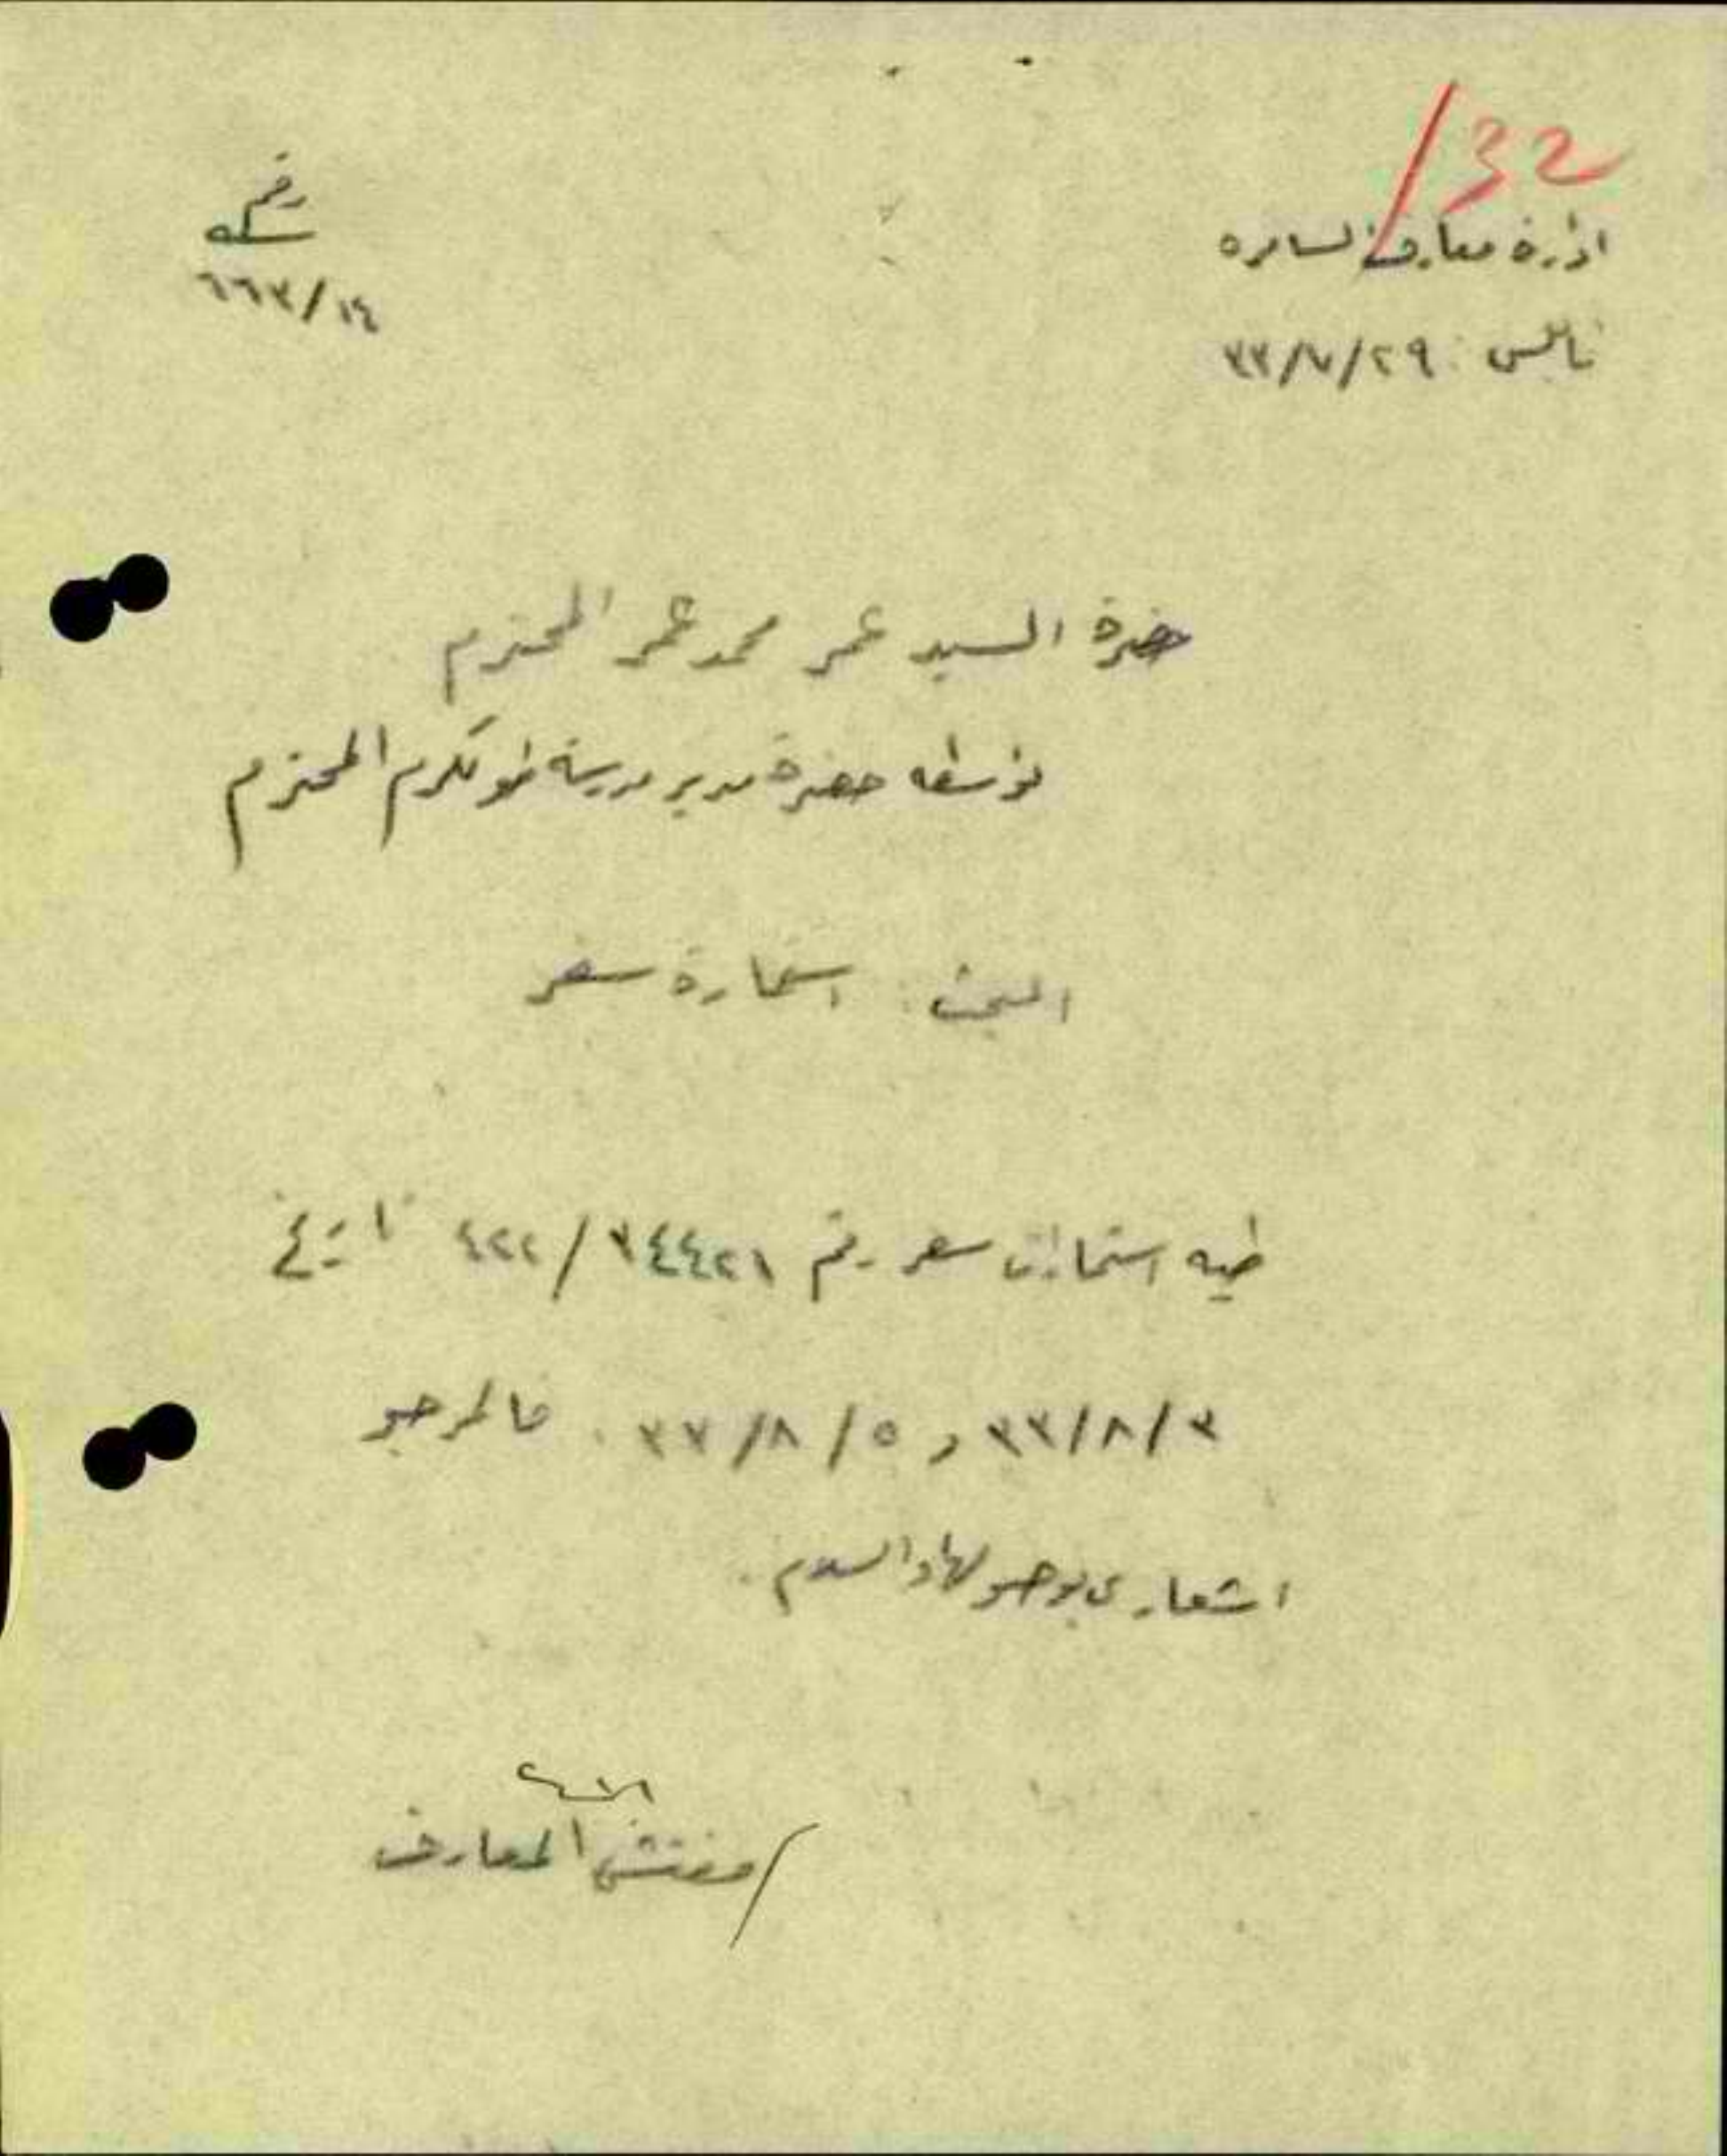 32/
ادارة معارف السامره
رقم
سكه
٦٦٣/١٤
نابلس : ٣٣/٧/٢٩
حضرة السيد عمر محمد عمر المحترم
بواسطة حضرة مدير مدرسة طولكرم المحترم
البحث : استمارة سفر
طيه استمارات سفر رقم ٣٤٤٢١/٤٢٢ تاريخ
٣٣/٨/٣ و ٣٣/٨/٥ . فالمرجو
اشعاري بوصولها والسلام .
/مفتش المعارف